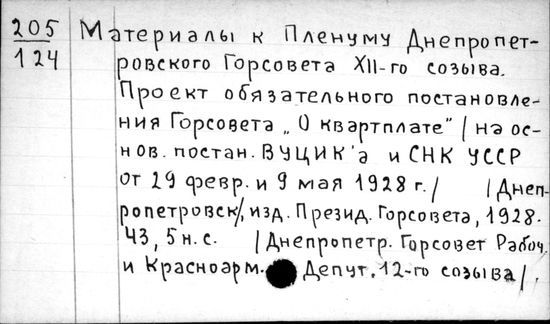 205
124
Материалы к Пленуму Днепропет-
ровского Горсовета XII-го созыва.
Проект обязательного постановле-
ния Горсовета „О квартплате" / на ос-
нов. постан. ВУЦИК'а и СНК УССР
от 29 февр. и 9 мая 1928 г. / /Днеп-
ропетровск/, изд. Презид. Горсовета, 1928.
43, 5 н. с. /Днепропетр. Горсовет Рабоч.
и Красноарм. Депут. 12-го созыва/.